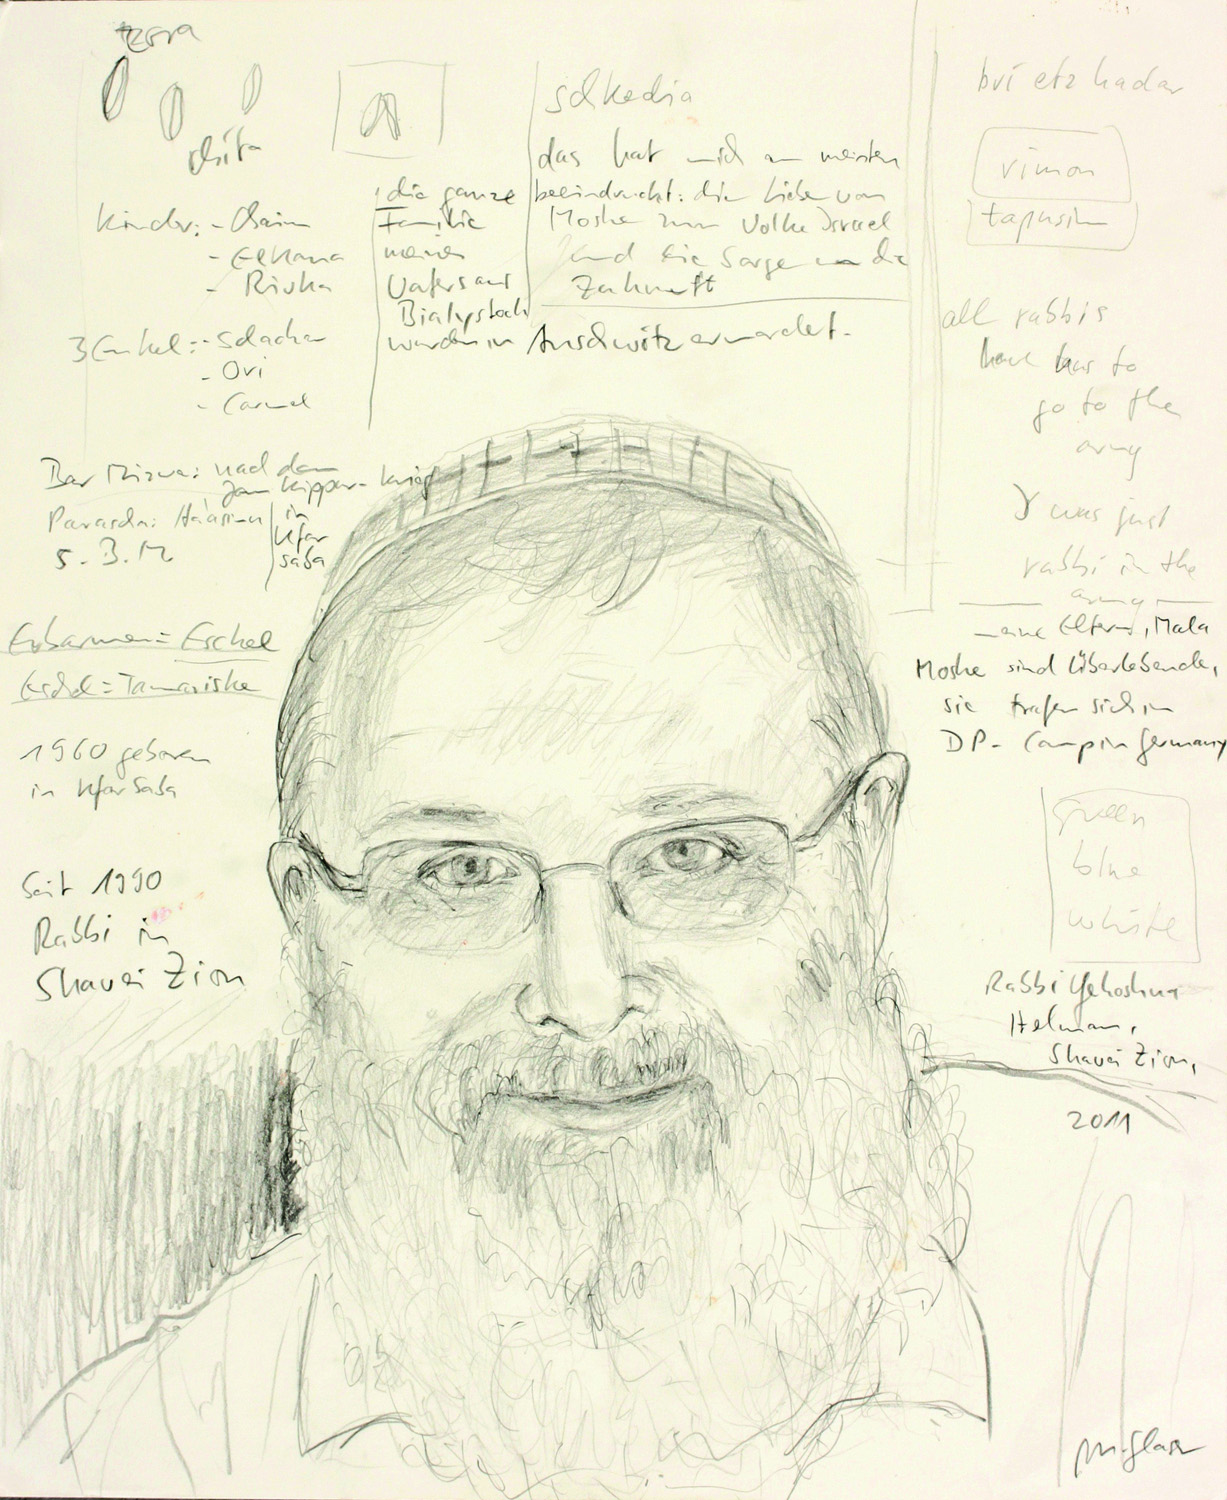 terra
Kinder: - Chaim
- Elkana
- Rivka
3 Enkel: -
- Ori
- Carmel
die ganze
Familie
meines
Vaters aus
Bialystock
wurden in Auschwitz ermordet.
das hat mich am meisten
beeindruckt: die Liebe von
Moshe zum Volke Israel
und die Sorge um die
Zukunft
Bar Mizwa: nach dem
Jom Kippur-Krieg
in
Kfar
Saba
Parascha: Ha'asinu
5. B. M
Erbarmen = Eschel
Eschel = Tamariske
1960 geboren
in Kfar Saba
Seit 1990
Rabbi in
Shavei Zion
pri etz hadar
rimon
tapusim
all rabbis
have to
go to the
army
I was just
rabbi in the
army
meine Eltern, Mala
Moshe sind Überlebende,
sie trafen sich im
DP-Camp in Germany
green
blue
white
Rabbi Yehoshua
Helman,
Shavei Zion,
2011
m. glaser